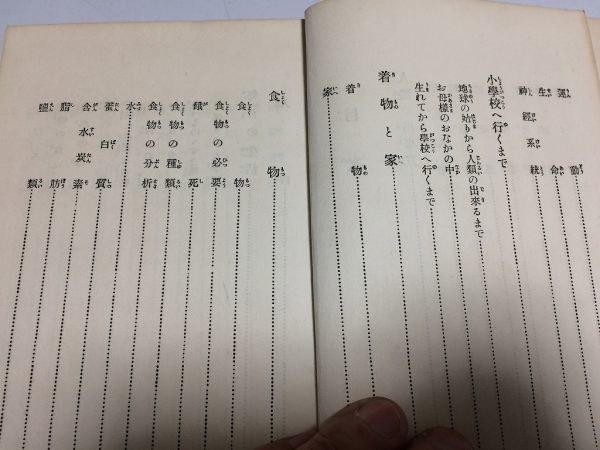 運動
生命
神經系統
小學校へ行くまで
地球の始りから人類の出來るまで
お母樣のおなかの中
生れてから學校へ行くまで
着物と家
着物
家
食物
食物
食物の必要
餓死
食物の種類
食物の分析
水
蛋白質
含水炭素
脂肪
鹽類